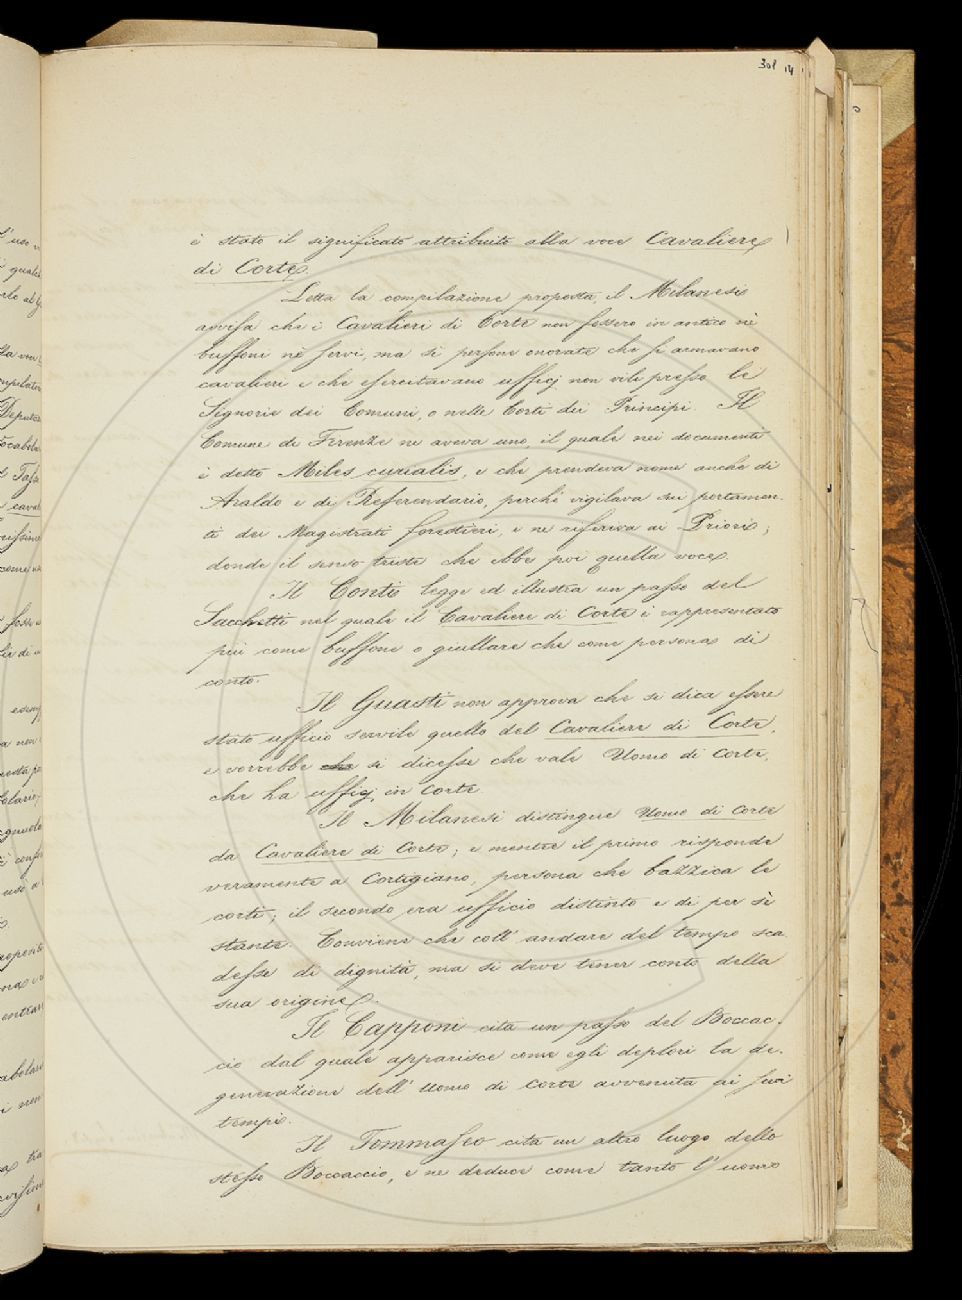 301 14
è stato il significato attribuito alla voce Cavaliere
di Corte.
Letta la compilazione proposta, il Milanesi
avvisa che i Cavalieri di Corte non fossero in antico nè
buffoni nè servi, ma sì persone onorate che si armavano
cavalieri e che esercitavano ufficj non vili presso le
Signorie dei Comuni, o nelle Corti dei Principi. Il
Comune di Firenze ne aveva uno, il quale nei documenti
è detto Miles curialis, e che prendeva nome anche di
Araldo e di Referendario, perchè vigilava sui portamen-
ti dei Magistrati forestieri, e ne riferiva ai Priori;
donde il senso triste che ebbe poi quella voce.
Il Conti legge ed illustra un passo del
Sacchetti nel quale il Cavaliere di Corte è rappresentato
più come buffone o giullare che come persona di
conto.
Il Guasti non approva che si dica essere
stato ufficio servile quello del Cavaliere di Corte,
e vorrebbe che si dicesse che vale Uomo di Corte,
che ha ufficj in Corte.
Il Milanesi distingue Uomo di Corte
da Cavaliere di Corte; e mentre il primo risponde
veramente a Cortigiano, persona che bazzica le
corti; il secondo era ufficio distinto e di per sè
stante. Conviene che coll'andare del tempo sca
desse di dignità, ma si deve tener conto della
sua origine.
Il Capponi cita un passo del Boccac-
cio dal quale apparisce come egli deplori la de-
generazione dell'Uomo di Corte avvenuta ai suoi
tempi.
Il Tommaseo cita un altro luogo dello
stesso Boccaccio, e ne deduce come tanto l'uomo